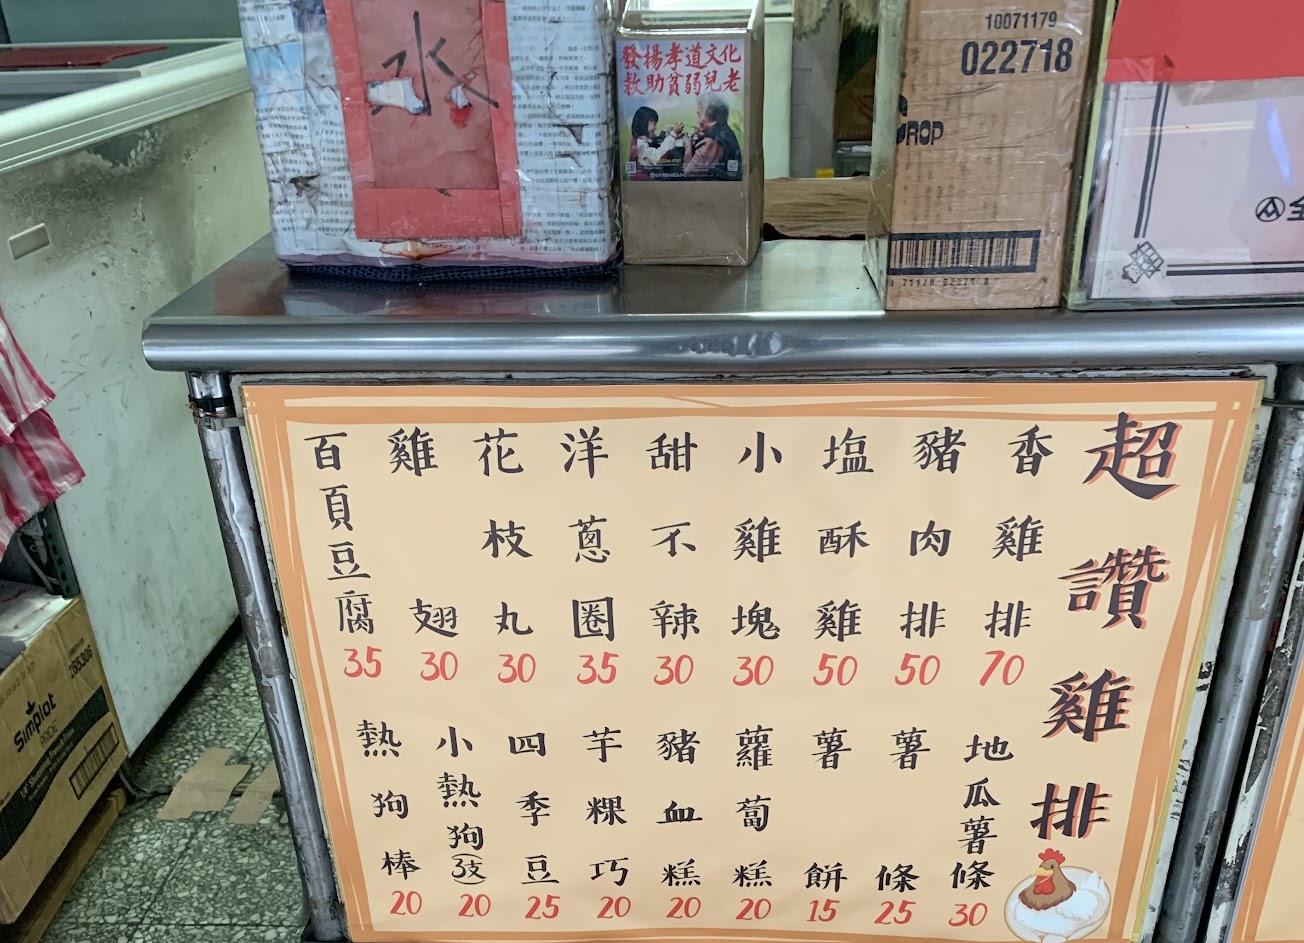 水
發揚孝道文化
救助貧弱兒老
10071179
022718
DROP
全
超讚雞排
香雞排 70
豬肉排 50
塩酥雞 50
小雞塊 30
甜不辣 30
洋蔥圈 35
花枝丸 30
雞翅 30
百頁豆腐 35
地瓜薯條 30
薯條 25
薯餅 15
蘿蔔糕 20
豬血糕 20
芋粿巧 20
四季豆 25
小熱狗(3支) 20
熱狗棒 20
Simplot
PRIDE